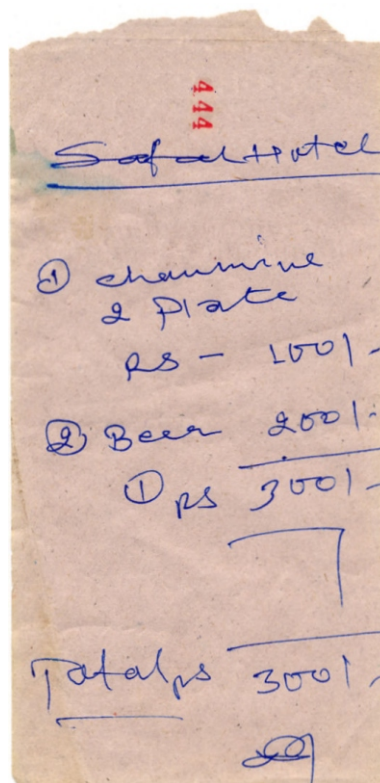 444
Safal Hotel
① chaumine
2 Plate
RS - 100/-
② Beer 200/-
① RS 300/-
Total RS 300/-